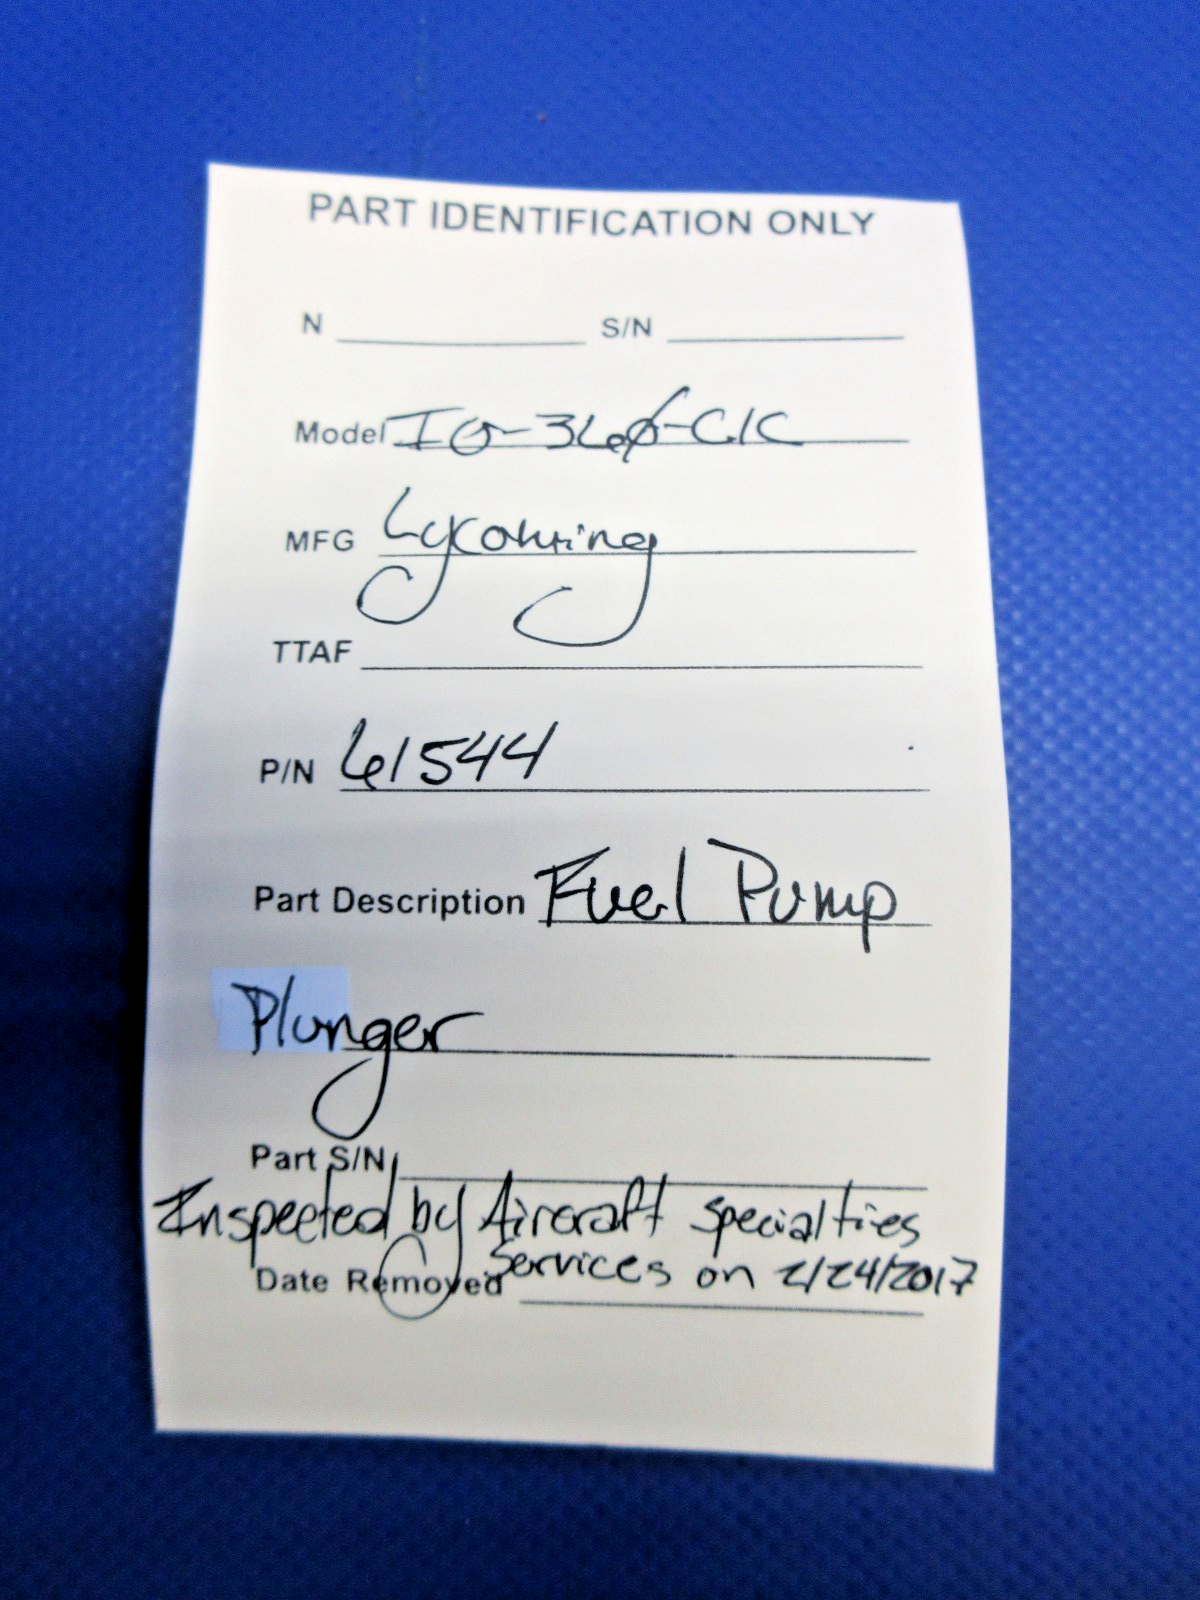 PART IDENTIFICATION ONLY
N S/N
Model IO-360-C1C
MFG Lycoming
TTAF
P/N 61544
Part Description Fuel Pump
Plunger
Part S/N
Inspected by Aircraft Specialties
Services on 2/24/2017
Date Removed